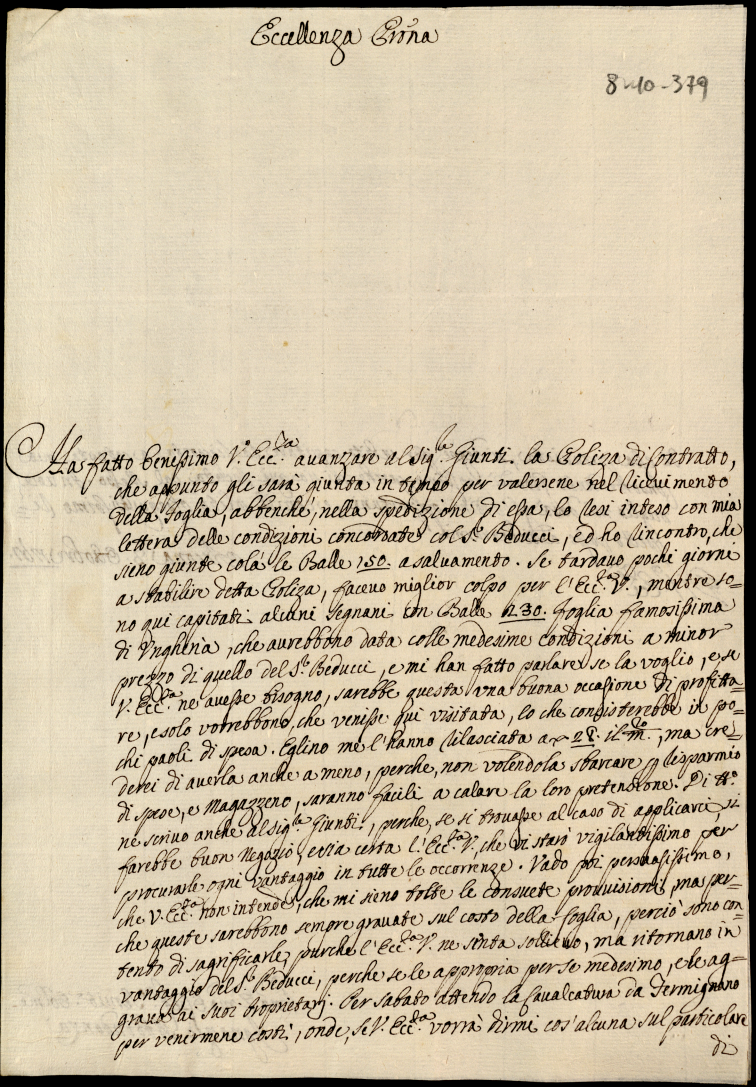 Eccellenza Prõna
8-10-379
Ha fatto beniſsimo V.ª Ecc.za avanzare al Sig.re Giunti la Poliza di Contratto,
che appunto gli sarà giunta in tempo per valersene nel ricevimento
della Foglia, abbenché, nella spedizione di eſsa, lo resi inteso con mia
lettera delle condizioni concordate col S.r Beducci, ed ho rincontro, che
sieno giunte colà le Balle 150. a salvamento. Se tardavo pochi giorni
a stabilire detta Poliza, facevo miglior colpo per l'Ecc.za V., mentre so=
no qui capitati alcuni Segnani con Balle 230. Foglia famosiſsima
di Ungheria, che avrebbono data colle medesime condizioni a minor
prezzo di quello del S.r Beducci, e mi han fatto parlare se la voglio, e se
V. Ecc.za ne aveſse bisogno, sarebbe questa una buona occasione di profitta=
re, e solo vorrebbono, che veniſse quì visitata, lo che consisterebbe in po=
chi paoli di spesa. Eglino me l'hanno rilasciata a 28. il m.ro, ma cre=
derei di averla anche a meno, perche, non volendola sbarcare p risparmio
di spese, e Magazzeno, saranno facili a calare la loro pretensione. Di tt.o
ne scrivo anche al Sig.re Giunti, perche, se si trovaſse al caso di applicarci, si
farebbe buon Negozio, e sia certa l'Ecc.za V., che vi starò vigilantiſsimo per
procurarle ogni vantaggio in tutte le occorrenze. Vado poi persuasiſsimo,
che V. Ecc.za non intende, che mi sieno tolte le consuete provvisioni, ma per=
che queste sarebbono sempre gravate sul costo della foglia, perciò sono con=
tento di sagrificarle, purche l'Ecc.za V. ne senta sollievo, ma ritornano in
vantaggio del S.r Beducci, perche se le appropria per se medesimo, e le ag=
grava ai suoi Proprietarj. Per sabato attendo la Cavalcatura da Fermignano
per venirmene costì, onde, se V. Ecc.za vorrà dirmi cos'alcuna sul particolare
di